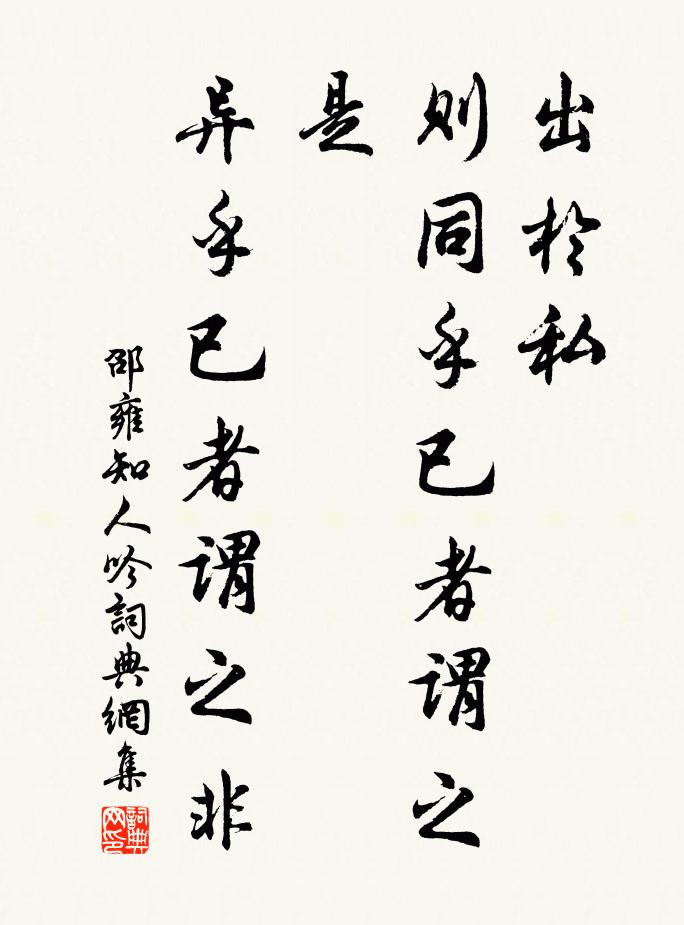 出於私
則同乎已者謂之
是
异乎已者謂之非
邵雍知人吟詞典網集
詞典网印